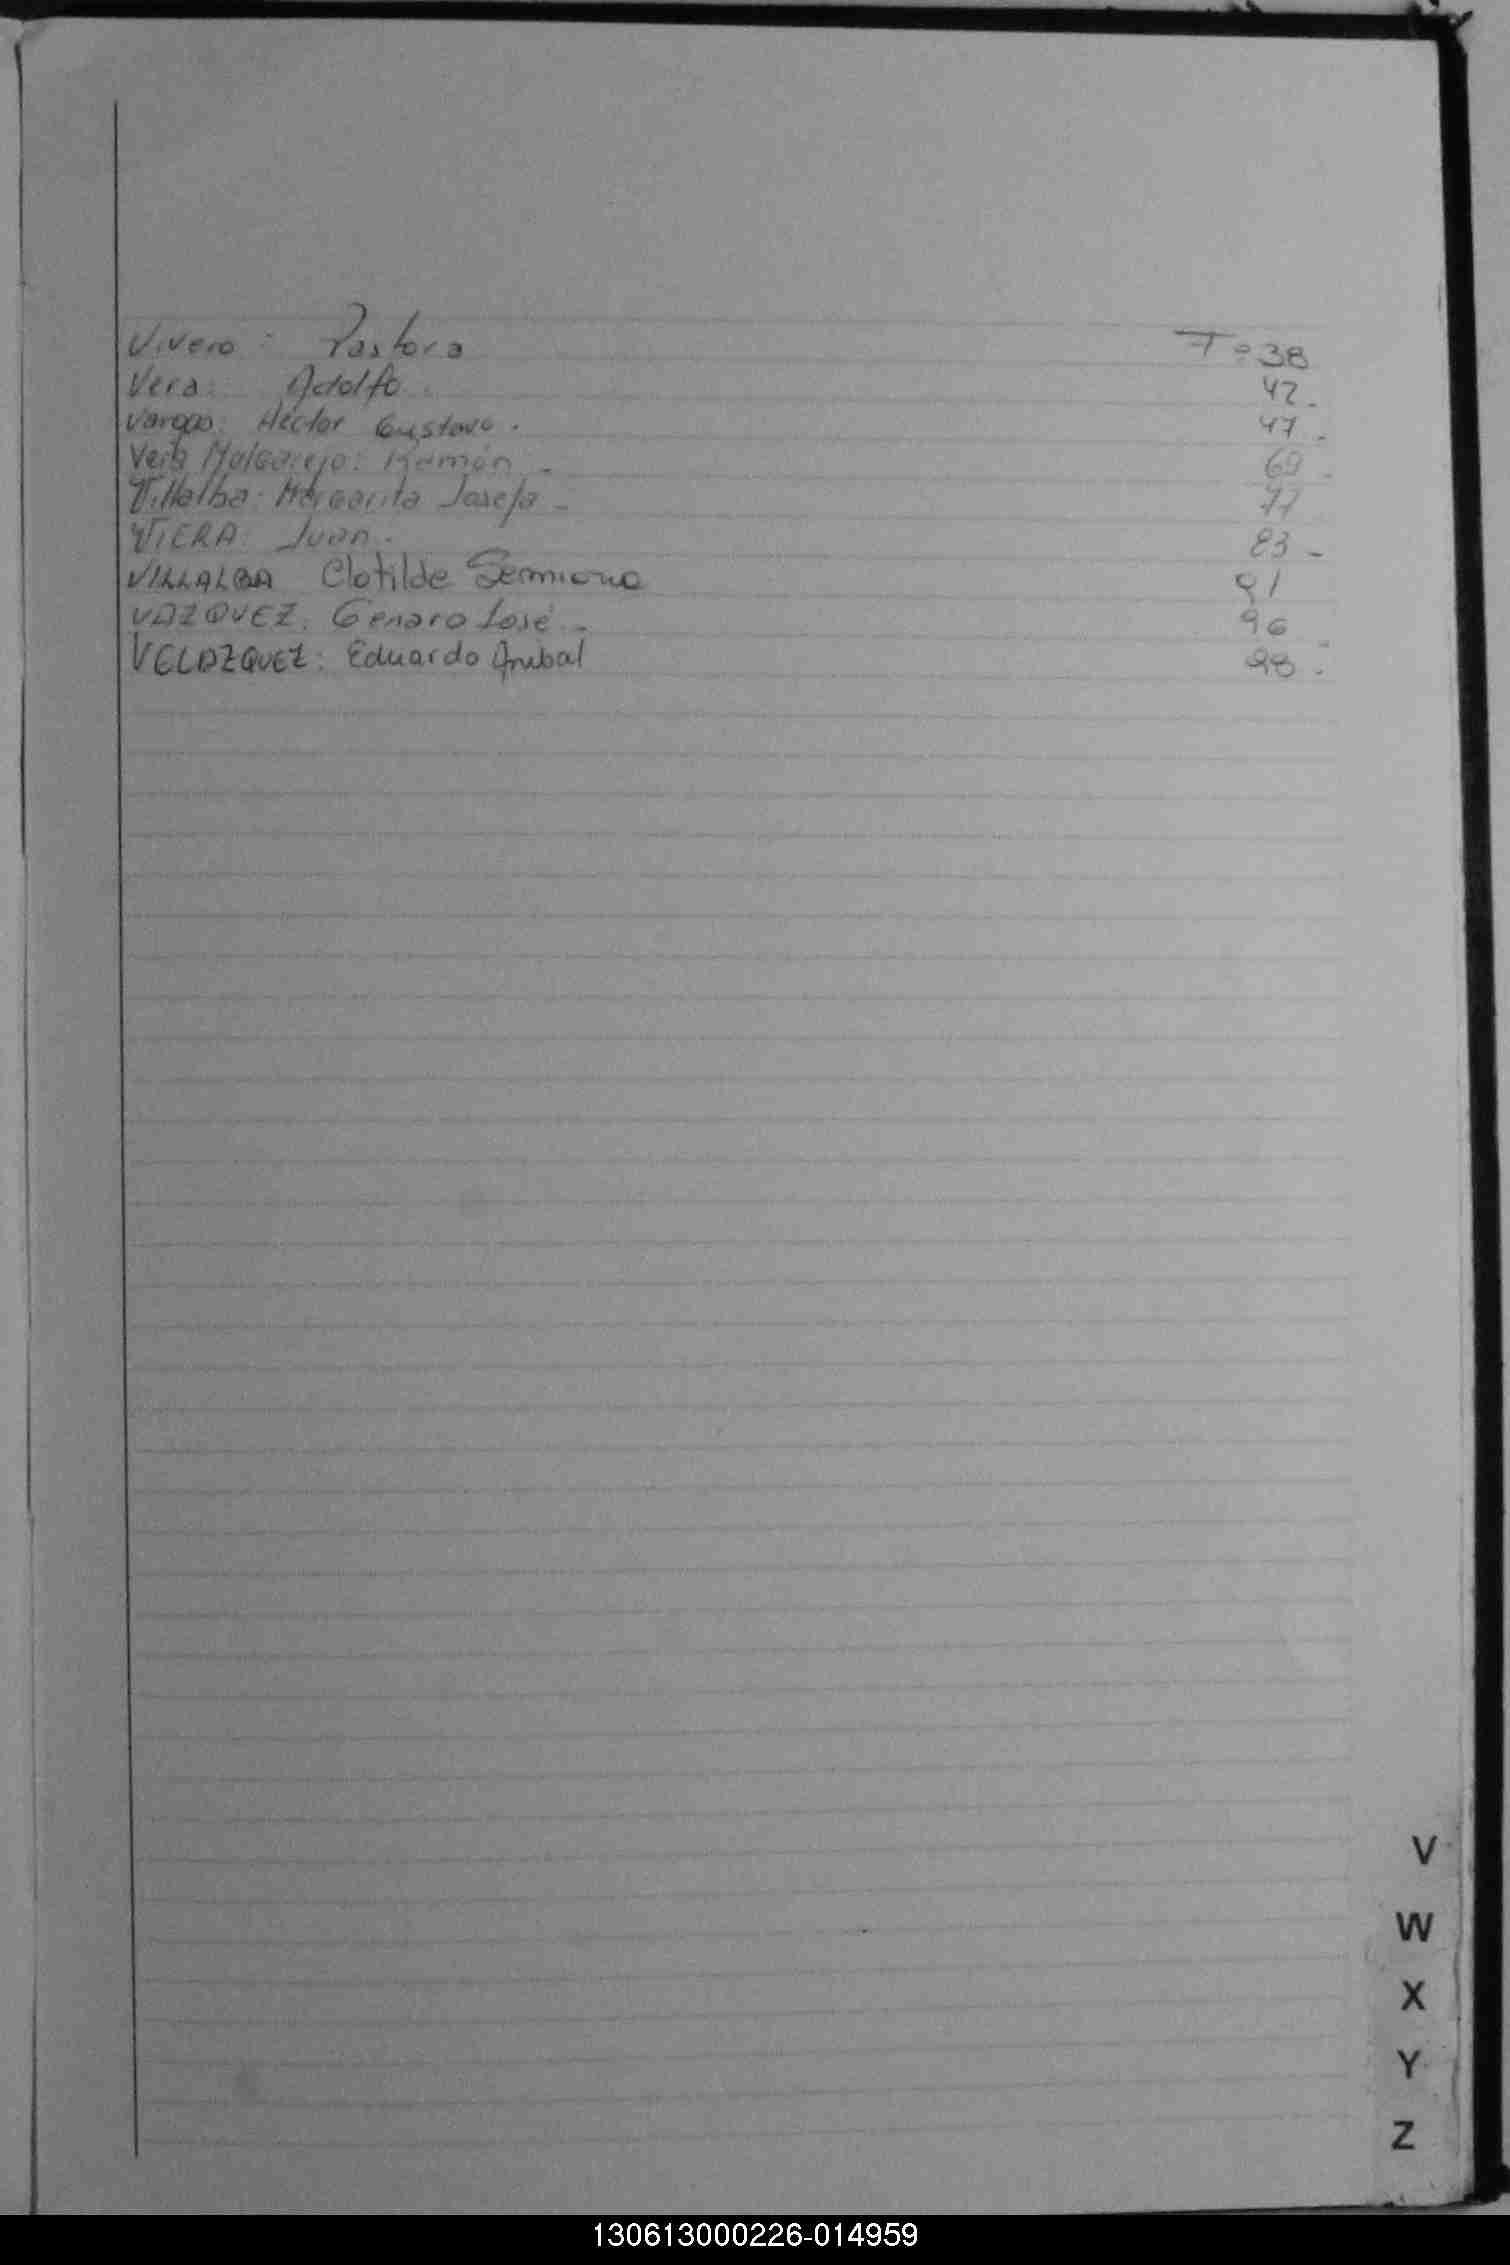 Vivero: Pastora Fº 38
Vera: Adolfo. 42.
Vargas: Héctor Gustavo. 47.
Vera Melgarejo: Ramón - 69.
Villalba: Margarita Josefa - 77
VIERA: Juan. 83 -
VILLALBA Clotilde 91
VAZQUEZ: Genaro José - 96
VELAZQUEZ: Eduardo Anibal 98.
V
W
X
Y
Z
130613000226-014959